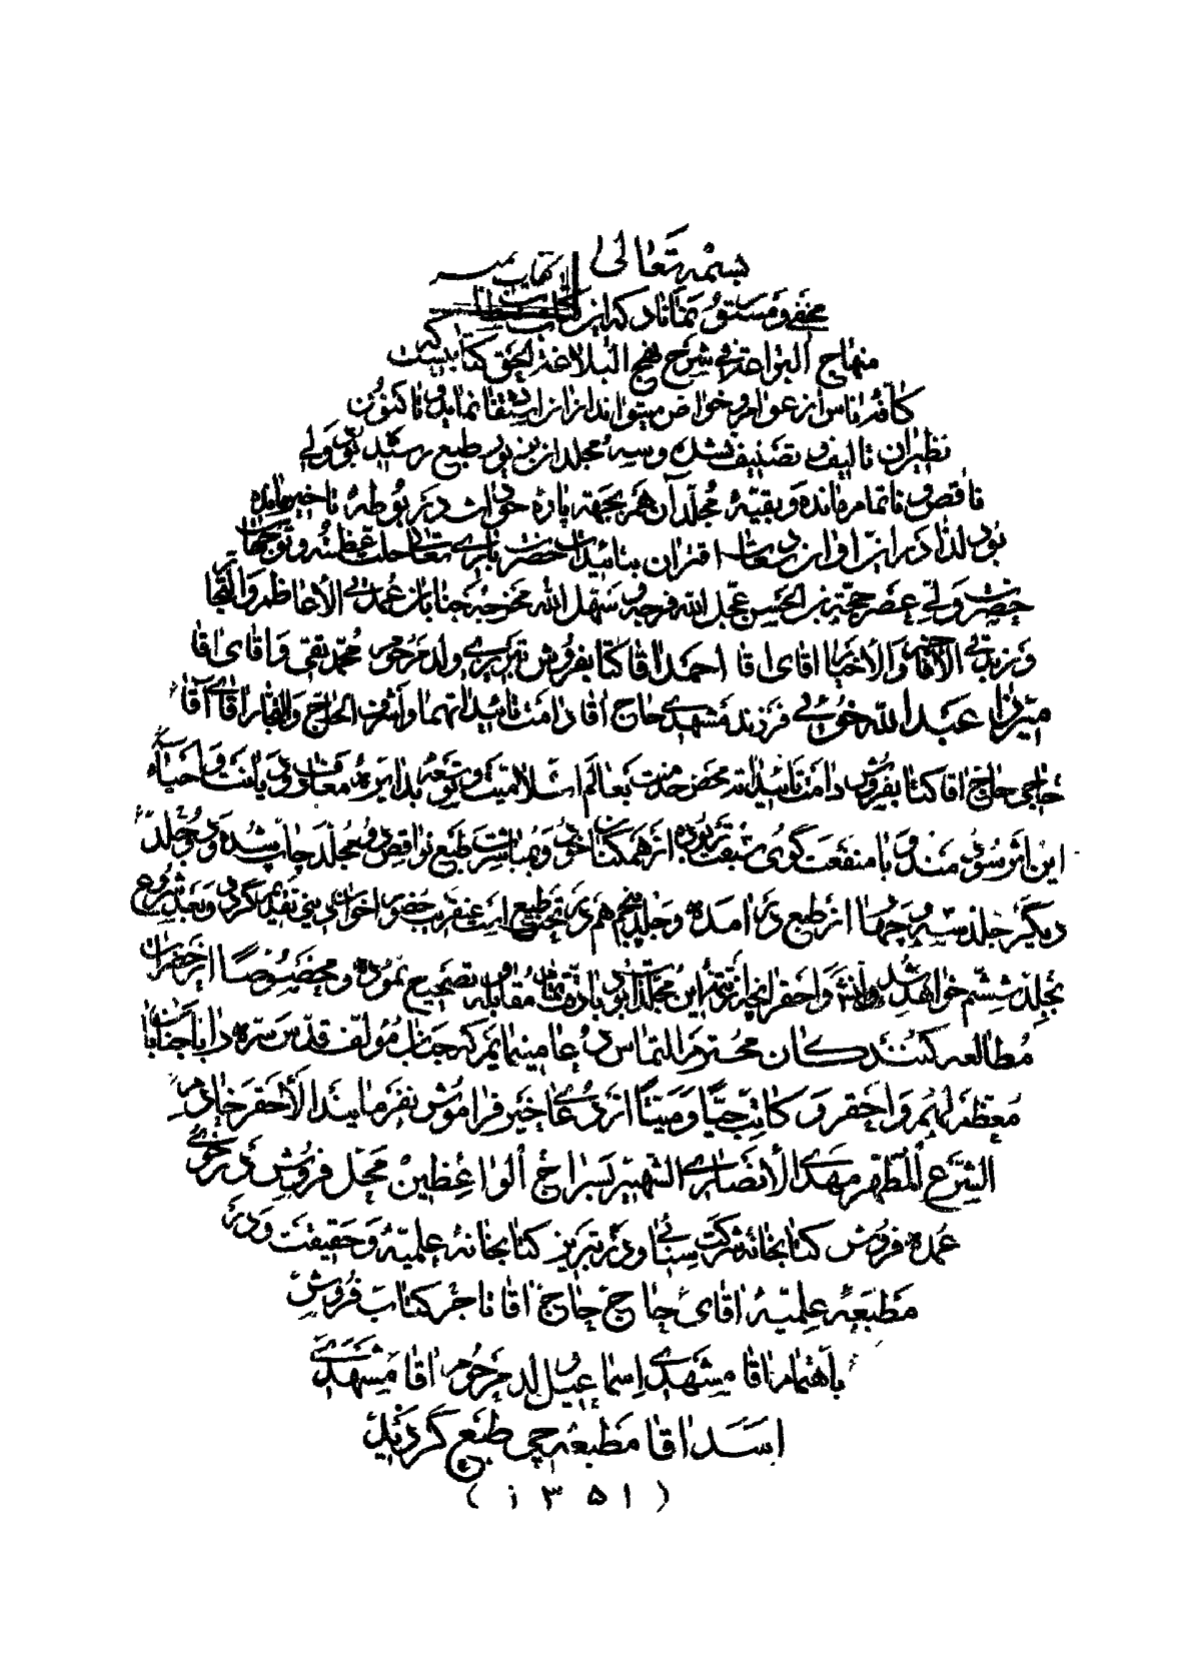 بسمه تعالی
مخفی و مستور نماناد که این کتاب مستطاب
منهاج البراعة فی شرح نهج البلاغة الحق کتابیست که
کافهٔ ناس از عوام و خواص میتوانند از آن استفاده نمایند و تا کنون
نظیر آن تالیف و تصنیف نشده و سه مجلد از این بزیور طبع رسیده بود ولی
ناقص و ناتمام مانده و بقیهٔ مجلدات آن هم بجهة پارهٔ حوادث در بوطهٔ تاخیر مانده
بود لذا در این اوان سعادت اقتران بتائیدات حضرت باری تعالی جلت عظمته و توجهات
حضرت ولی عصر حجة بن الحسن عجل الله فرجه و سهل الله مخرجه جنابان عمدتی الاعاظم و التجار
و زبدتی الاقران و الاخیار اقای اقا احمد اقا کتابفروش تبریزی ولد مرحوم محمد تقی و اقای اقا
میرزا عبدالله خوئی فرزند مشهدی حاج اقا دامت تائیداتهما و اشرف الحاج و التجار اقای آقا
حاجی حاج اقا کتابفروش دامت تائیداته محض خدمت بعالم اسلامیت و توسعه بدایره معارف و دیانت و احیاء
این اثر سودمند و با منفعت گوی سبقت ربوده از همکنان خود و بمباشرت طبع نواقص دو مجلد چاپ شده و دو جلد
دیگر جلد سیم و چهارم از طبع در امده و جلد پنجم هم در تحت طبع است عنقریب حضور اخوان دینی تقدیم گردد و بعد شروع
بجلد ششم خواهد شد انشاء و احقر انچه از تتمهٔ این مجلدات بود با دقت تمام مقابله و تصحیح نموده و مخصوصا از حضرات
مطالعه کنندکان محترم التماس دعا مینمایم که جناب مؤلف قدس سره را با جنابان
معظم لهم و احقر و کاتب حیا و میتا از دعای خیر فراموش نفرمایند الاحقر خادم
الشرع المطهر مهدی الانصاری الشهیر بسراج الواعظین محل فروش در خوی
عمده فروش کتابخانه شرکت سینائی و در تبریز کتابخانهٔ علمیهٔ و حقیقت و در
مطبعهٔ علمیهٔ اقای حاج حاج اقا تاجر کتاب فروش
باهتمام اقا مشهدی اسماعیل ولد مرحوم اقا مشهدی
اسد اقا مطبعه چی طبع گردید
(۱۳۵۱)